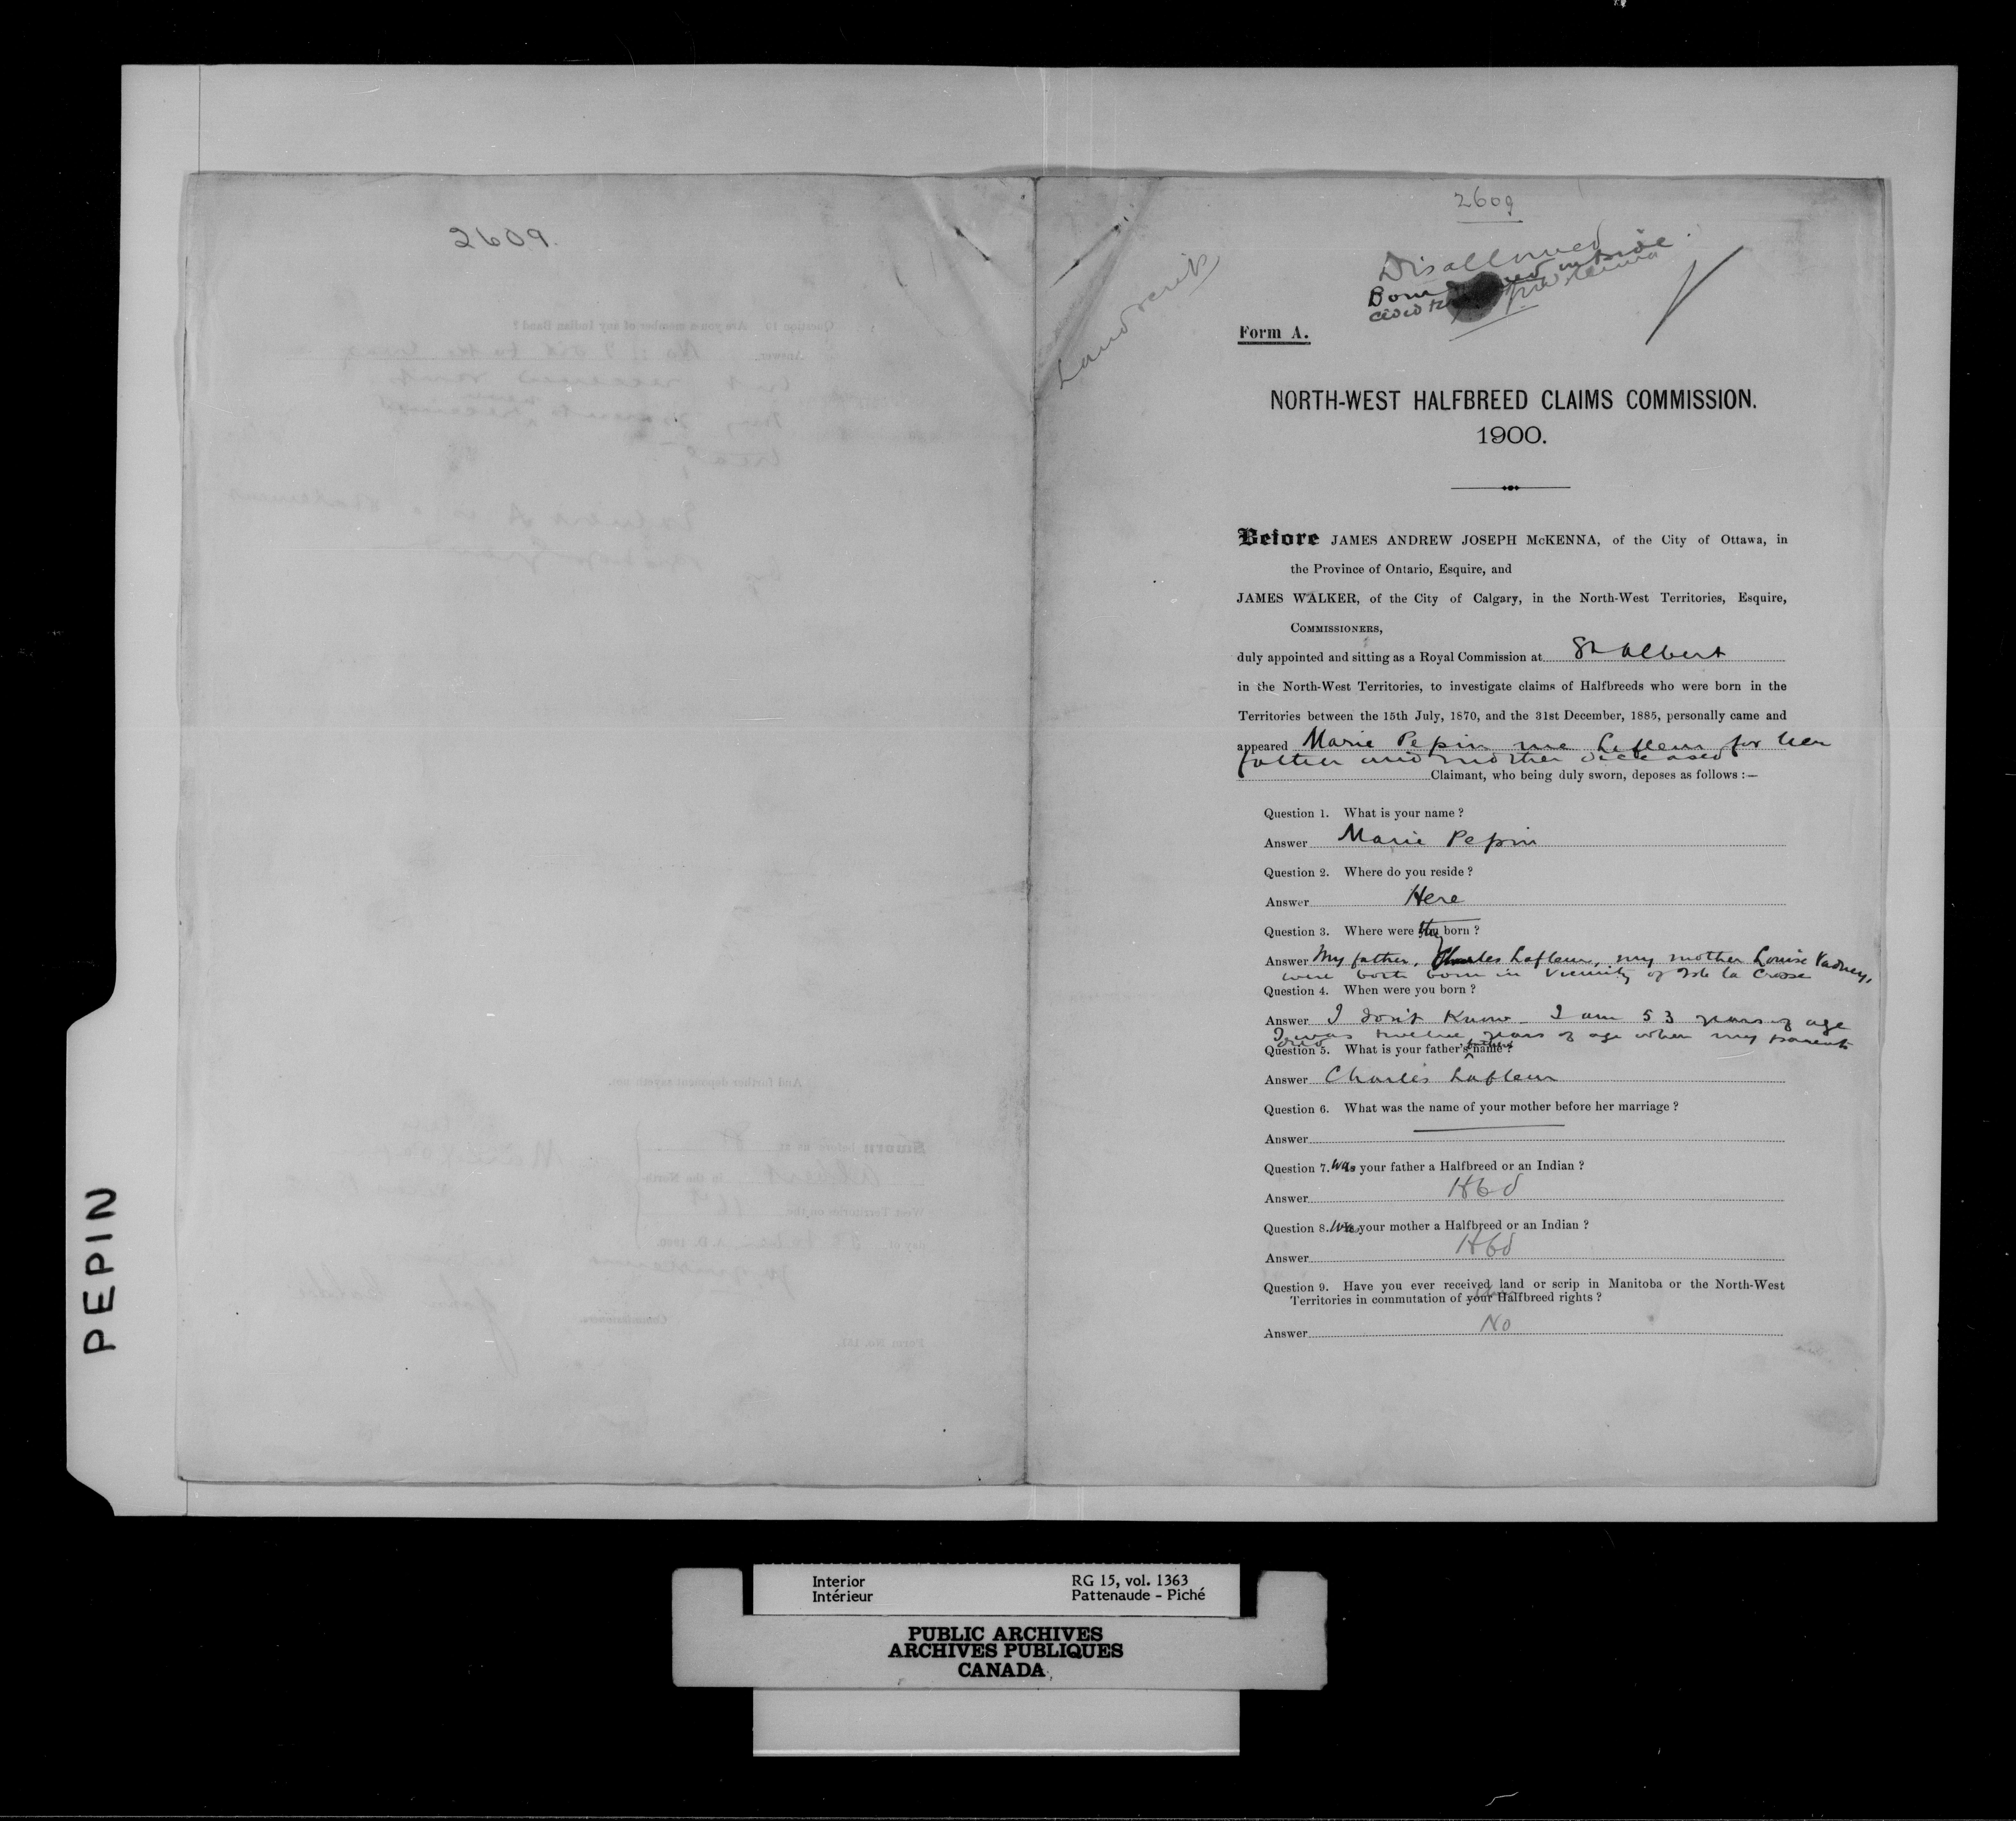 2609.
2609
Disallowed
Born
Land scrip
Form A.
NORTH-WEST HALFBREED CLAIMS COMMISSION.
1900.
Before JAMES ANDREW JOSEPH McKENNA, of the City of Ottawa, in
the Province of Ontario, Esquire, and
JAMES WALKER, of the City of Calgary, in the North-West Territories, Esquire,
COMMISSIONERS,
duly appointed and sitting as a Royal Commission at St Albert
in the North-West Territories, to investigate claims of Halfbreeds who were born in the
Territories between the 15th July, 1870, and the 31st December, 1885, personally came and
appeared Marie Pepin nee Lafleur for her
father and mother deceased
Claimant, who being duly sworn, deposes as follows :—
Question 1. What is your name ?
Answer Marie Pepin
Question 2. Where do you reside ?
Answer Here
Question 3. Where were they born ?
Answer My father, Charles Lafleur, my mother Louise Vadney,
were both born in vicinity of Isle la Crosse
Question 4. When were you born ?
Answer I don't know - I am 53 years of age
I was twelve years of age when my parents
died
Question 5. What is your father's father's name ?
Answer Charles Lafleur
Question 6. What was the name of your mother before her marriage ?
Answer
Question 7. Was your father a Halfbreed or an Indian ?
Answer Hbd
Question 8. Was your mother a Halfbreed or an Indian ?
Answer Hbd
Question 9. Have you ever received land or scrip in Manitoba or the North-West
Territories in commutation of your Halfbreed rights ?
Answer No
PEPIN
Interior RG 15, vol. 1363
Intérieur Pattenaude - Piché
PUBLIC ARCHIVES
ARCHIVES PUBLIQUES
CANADA